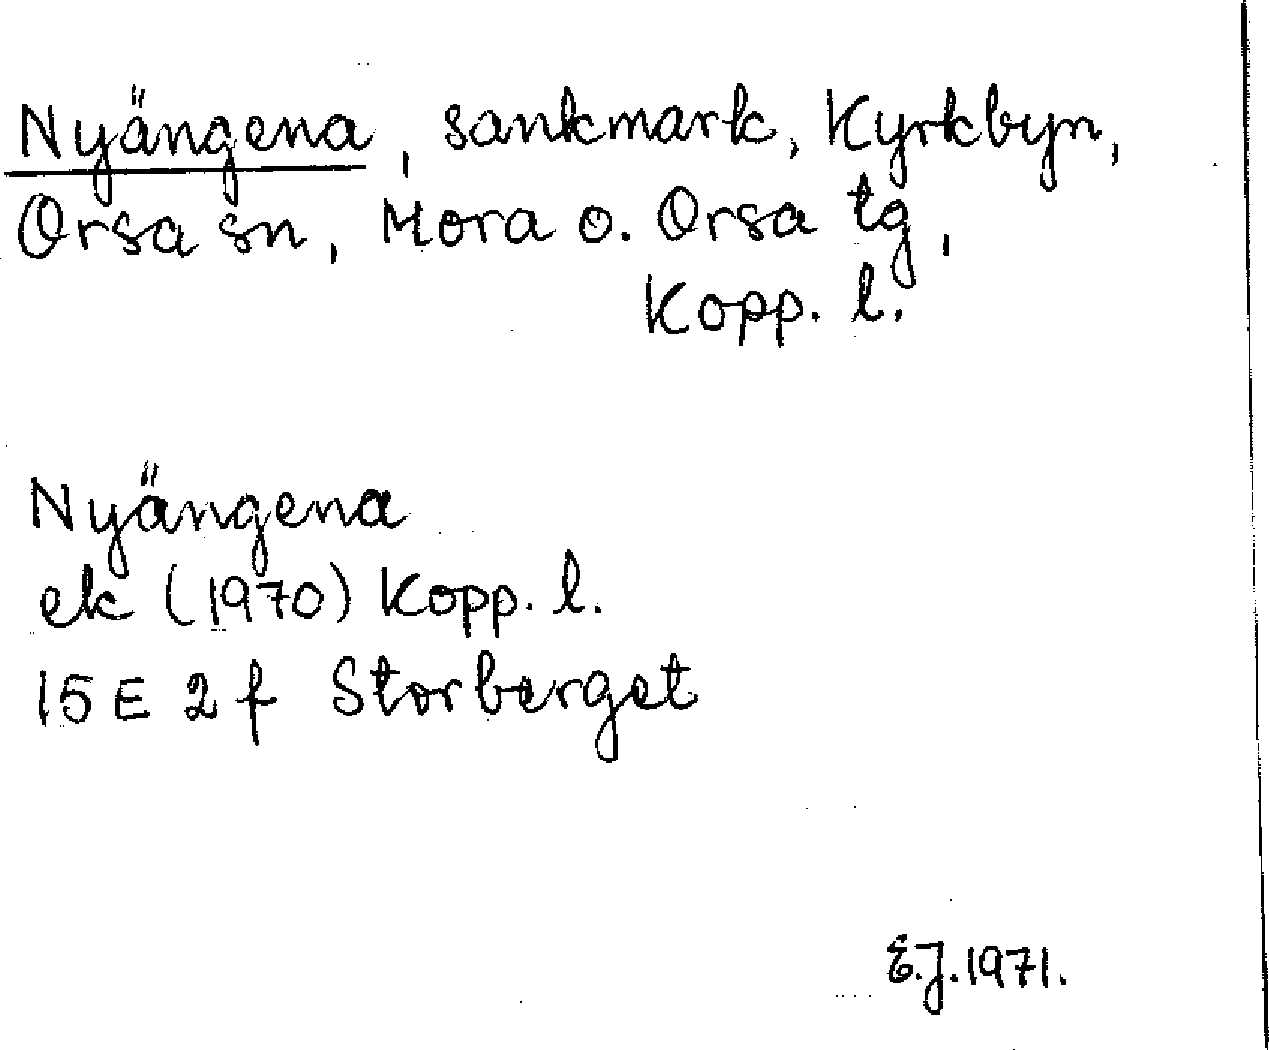 Nyängena, sankmark, Kyrkbyn,
Orsa sn, Mora o. Orsa tg,
Kopp. l.
Nyängena
ek (1970) Kopp. l.
15 E 2 f Storberget
E.J. 1971.